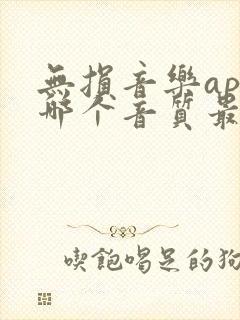 無損音樂ap
哪个音質最
喫飽喝足的狗